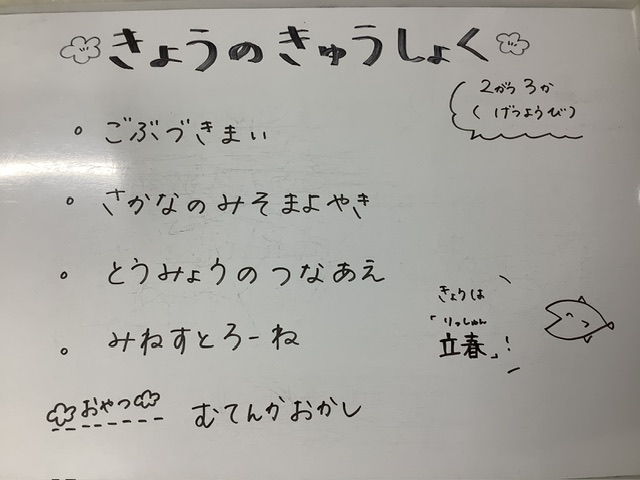 きょうのきゅうしょく
2がつ3か
(げつようび)
。ごぶづきまい
。さかなのみそまよやき
。とうみょうのつなあえ
。みねすとろーね
きょうは
「りっしゅん
立春」!
おやつ むてんかおかし